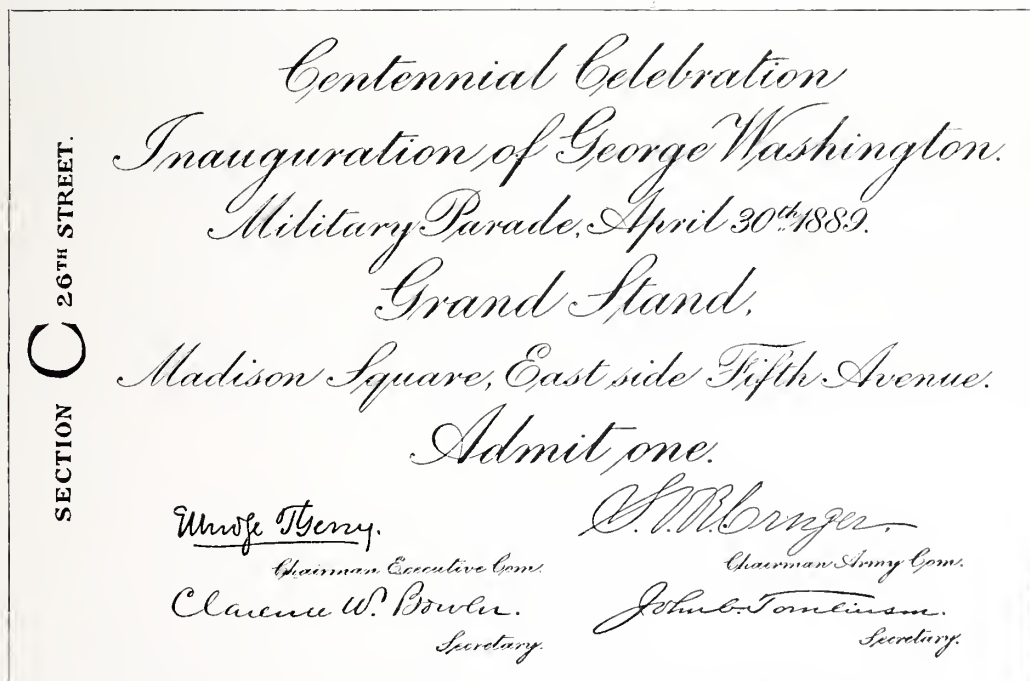 SECTION C 26TH STREET.
Centennial Celebration
Inauguration of George Washington.
Military Parade, April 30th 1889.
Grand Stand,
Madison Square, East side Fifth Avenue.
Admit one.
Elbridge T. Gerry.
Chairman Executive Com.
S. V. R. Cruger.
Chairman Army Com.
Clarence W. Bowen.
Secretary.
John C. Tomlinson.
Secretary.